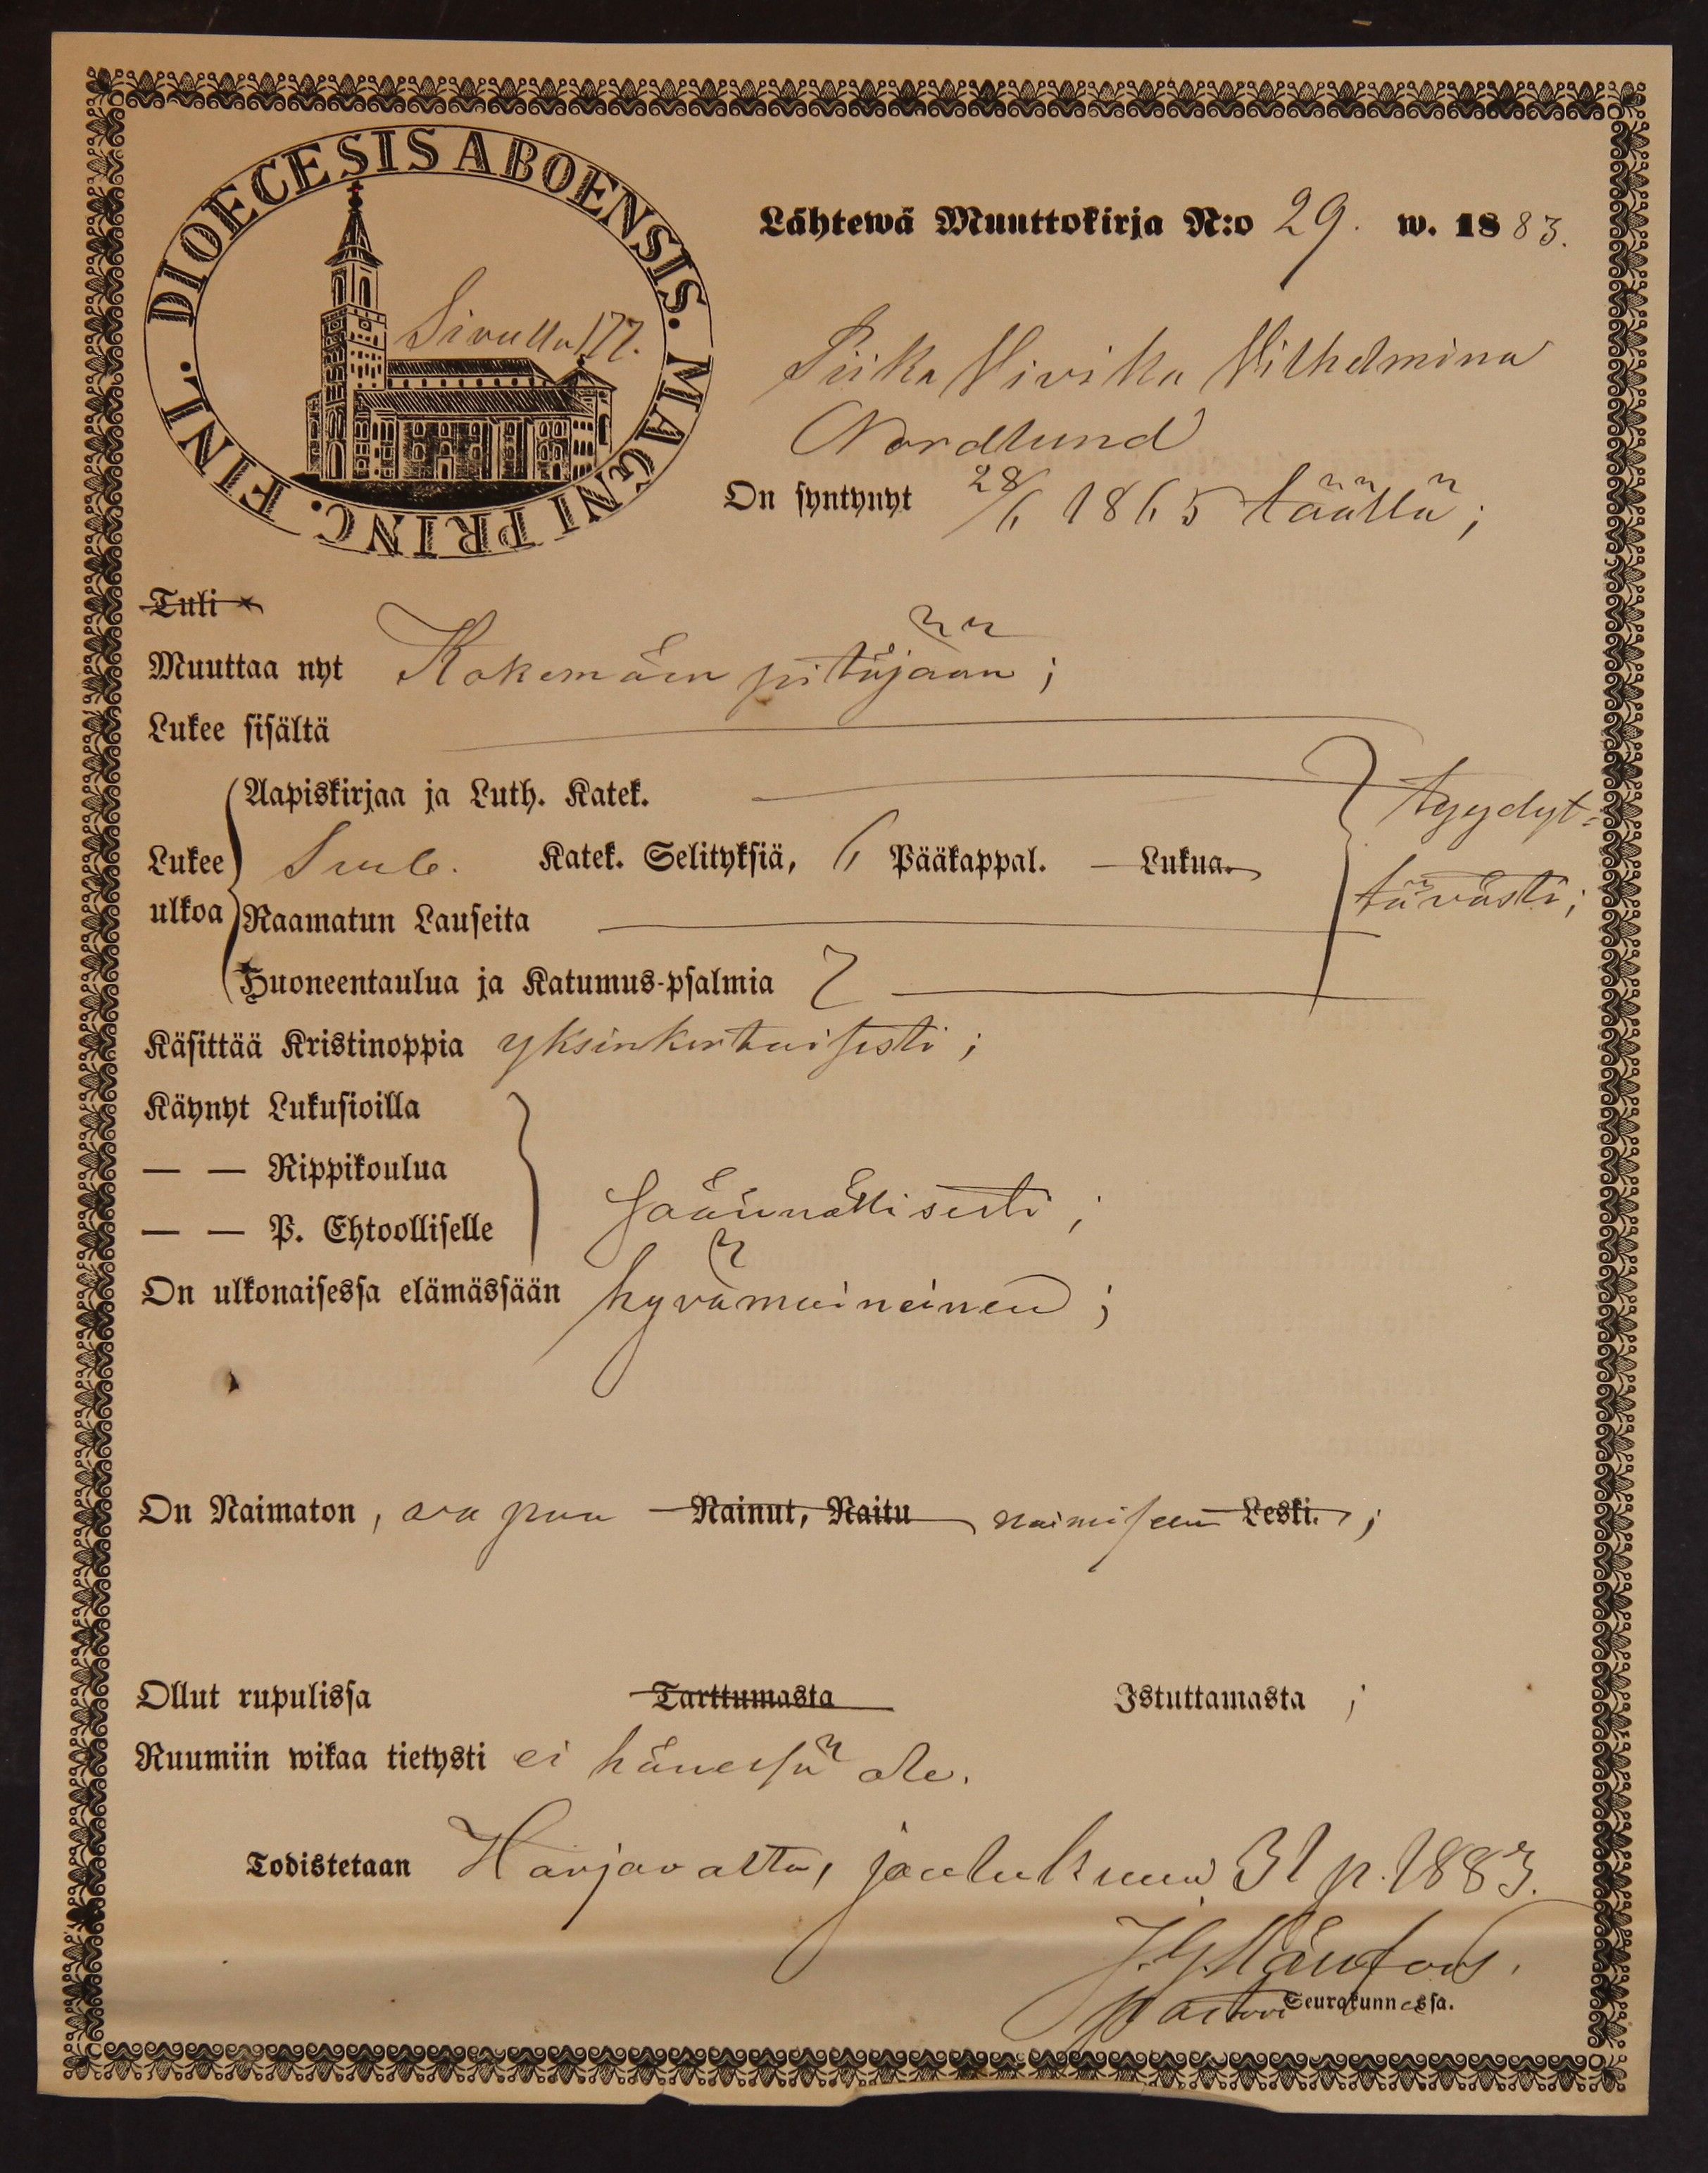 DIOECESIS ABOENSIS. MAGNI PRINC. FINL.
Sivulla 177.
Lähtewä Muuttokirja N:o 29. w. 1883.
Piika Vivika Vilhelmina
Nordlund
On syntynyt 28/6 1865 täällä;
Tuli
Muuttaa nyt Kokemäen pitäjään;
Lukee sisältä
Aapiskirjaa ja Luth. Katek.
Lukee ulkoa
Katek. Selityksiä, 6 Pääkappal. Lukua.
Raamatun Lauseita
Huoneentaulua ja Katumus-psalmia
tyydyt-
tävästi;
Käsittää Kristinoppia yksinkertaisesti;
Käynyt Lukusioilla
— — Rippikoulua
— — P. Ehtoolliselle
säännöllisesti;
On ulkonaisessa elämässään hyvämaineinen;
On Naimaton, vapaa Nainut, Naitu naimiseen Leski.;
Ollut rupulissa Tarttumasta Istuttamasta;
Ruumiin wikaa tietysti ei hänessä ole.
Todistetaan Harjavalta, joulukuun 31 p. 1883.
Pastori Seurakunnassa.